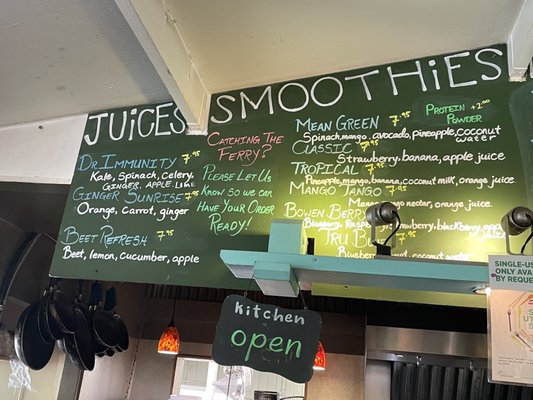 JUICES
DR. IMMUNITY 7.95
Kale, Spinach, celery,
GINGER, APPLE, LIME
GINGER SUNRISE 7.95
Orange, carrot, ginger
BEET REFRESH 7.95
Beet, lemon, cucumber, apple
CATCHING THE
FERRY?
PLEASE LET US
KNOW SO WE CAN
HAVE YOUR ORDER
READY!
SMOOTHIES
PROTEIN +2.00
POWDER
MEAN GREEN 7.95
Spinach, mango, avocado, pineapple, coconut
water
CLASSIC 7.95
Strawberry, banana, apple juice
TROPICAL 7.95
Pineapple, mango, banana, coconut milk, orange juice
MANGO JANGO 7.95
Mango nectar, orange juice
BOWEN BERRY
strawberry, blackberry, apple
TRU BLU 7.95
Blueberry, coconut water
kitchen
open
SINGLE-US
ONLY AVA
BY REQUE